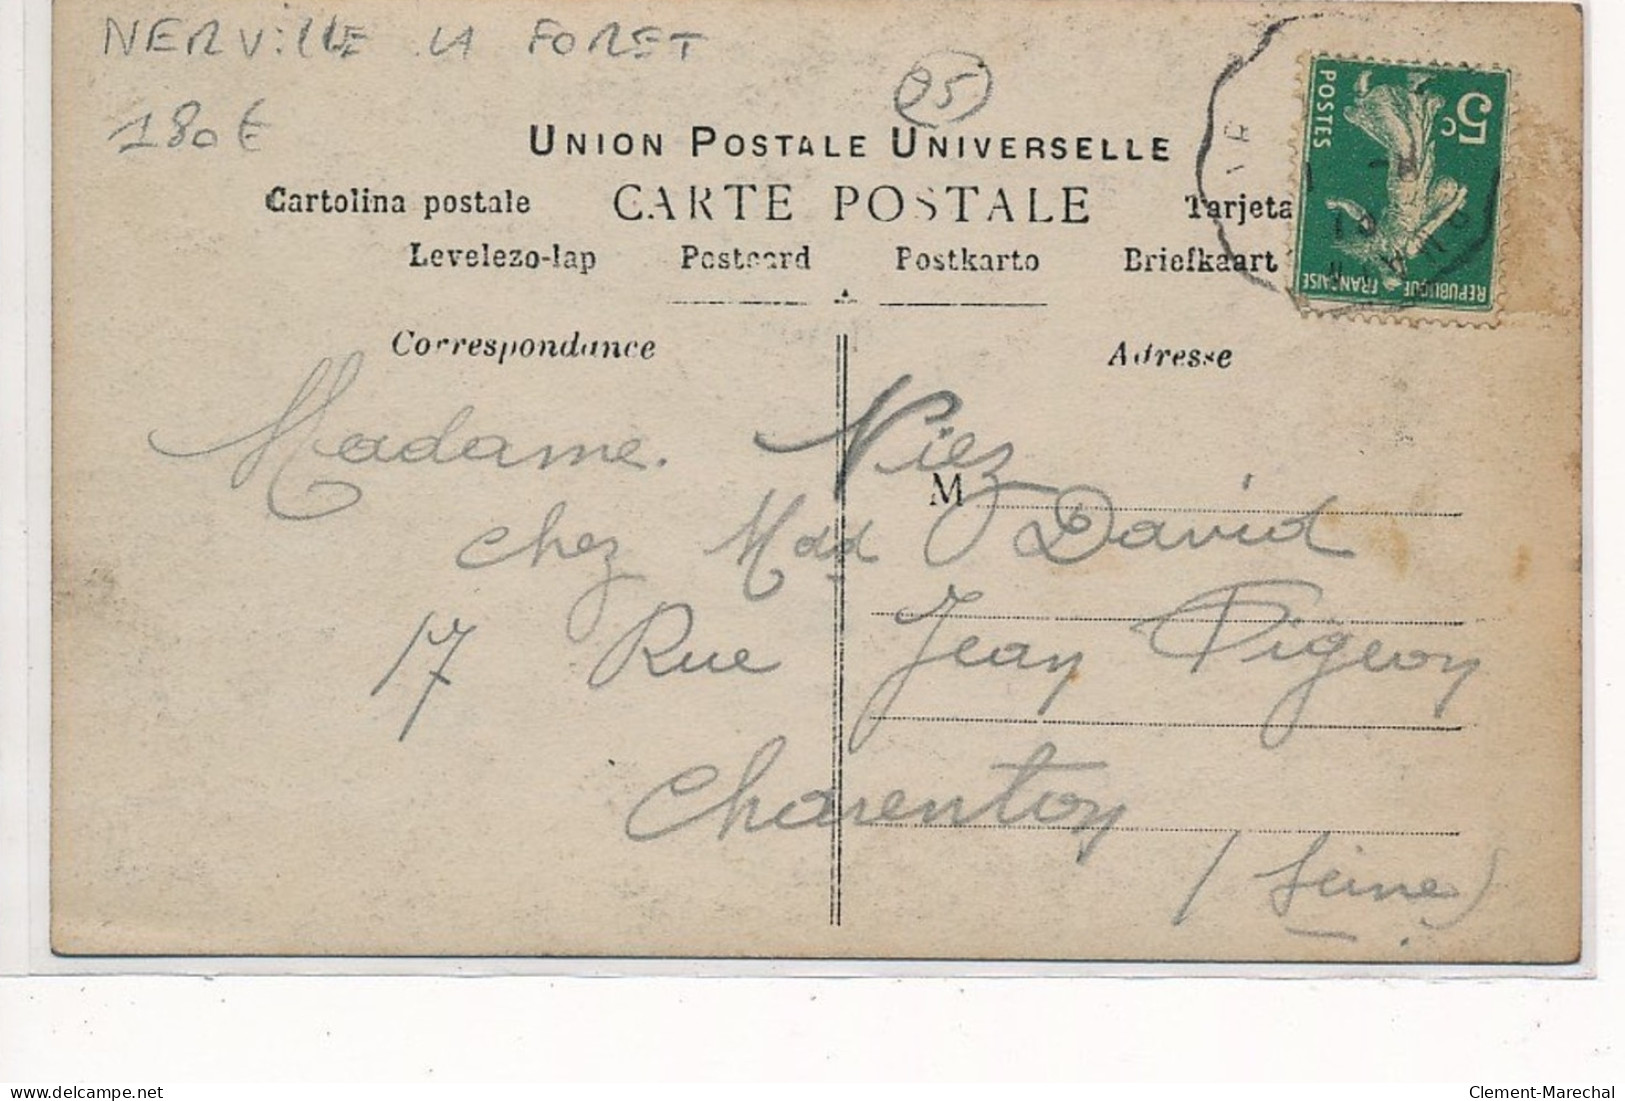 NERVILLE LA FORET
95
180€
UNION POSTALE UNIVERSELLE
Cartolina postale CARTE POSTALE Tarjeta
Levelezo-lap Postcard Postkarto Briefkaart
5c
POSTES
REPUBLIQUE FRANÇAISE
Correspondance Adresse
Madame. Niez
M
chez Mdd David
17 Rue Jean Pigeon
Charenton
(Seine)
delcampe.net
Clement-Marechal